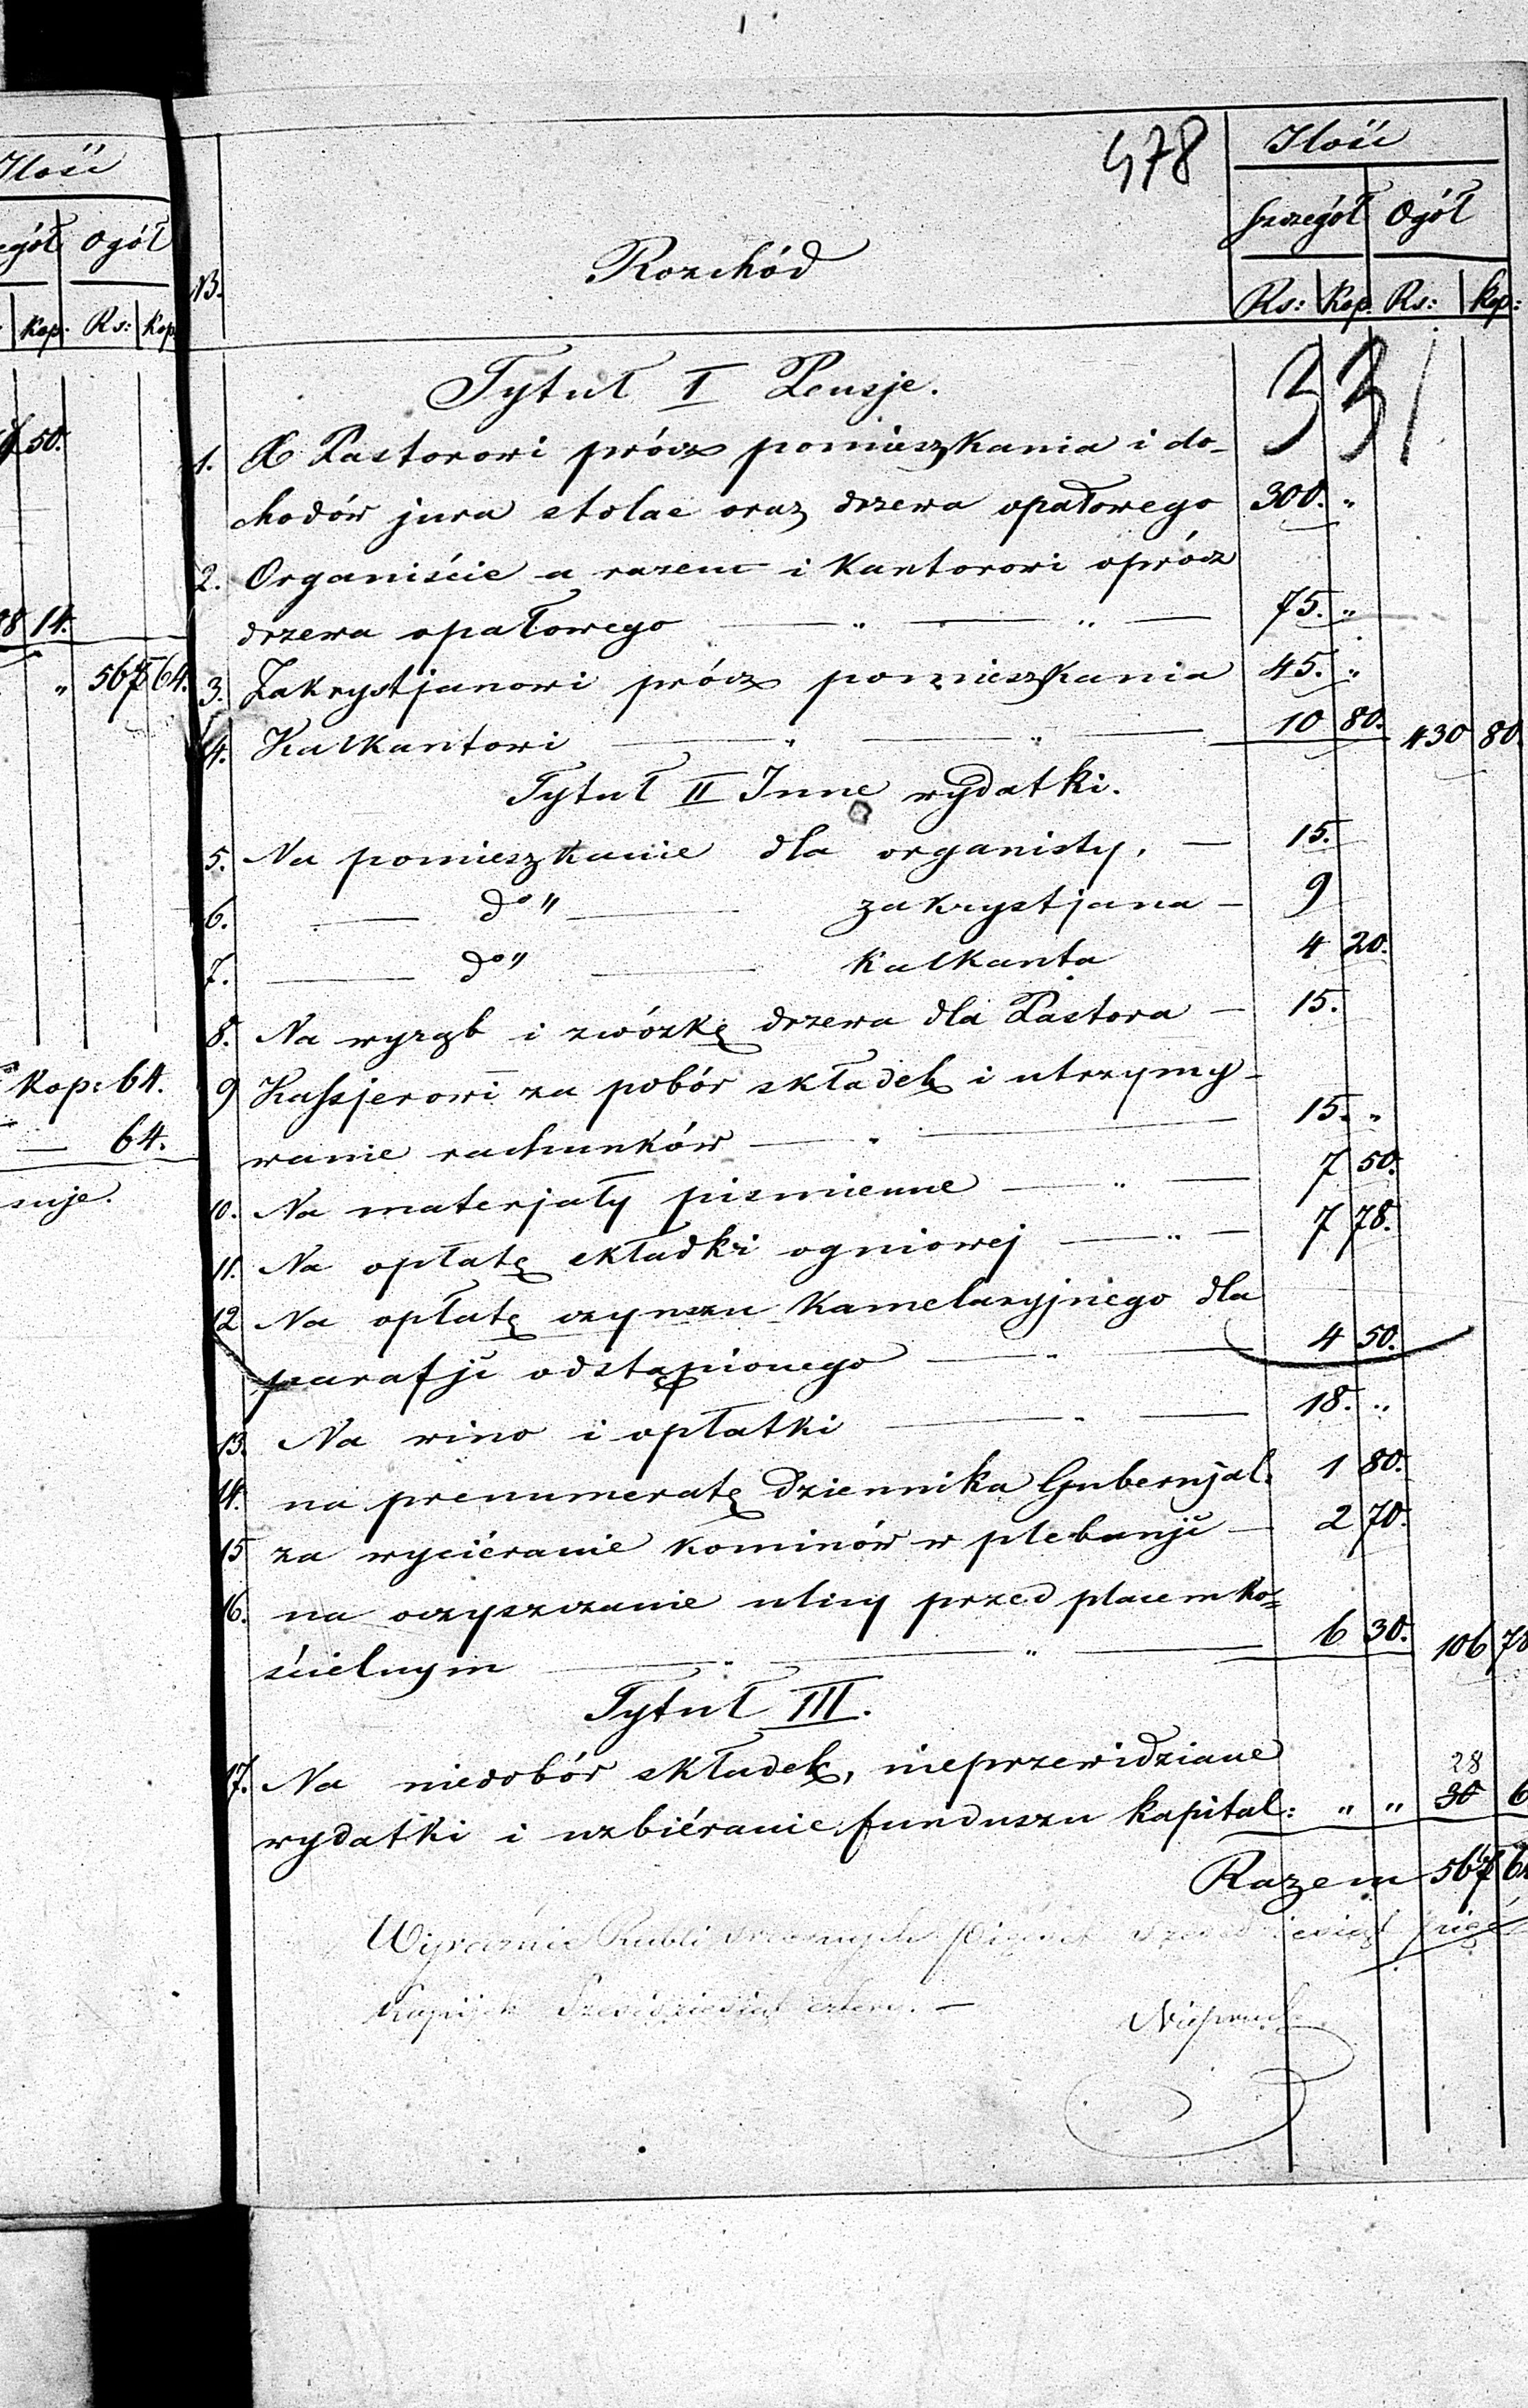 Ilość
Ogół
Kop: Rs: Kop
50.
14.
" 567 64.
Kop: 64.
— 64.
478
Ilość
Szczegół Ogół
N3. Rozchód
Rs: Kop. Rs: Kop:
331
Tytuł I Pensje.
1. X Pastorowi prócz pomieszkania i do-
chodów jura stolae oraz drzewa opałowego 300. "
2. Organiście a razem i Kantorowi oprócz
drzewa opałowego — " — " — 75. "
3. Zakrystjanowi prócz pomieszkania 45. "
4. Kalkantowi — " — " — 10 80. 430 80
Tytuł II Inne wydatki.
5. Na pomieszkanie dla organisty. — 15.
6. — do " — zakrystjana — 9
7. — do " — Kalkanta 4 20.
8. Na wyrąb i zwózkę drzewa dla Pastora — 15.
9 Kassjerowi za pobór składek i utrzymy-
wanie rachunków — " — 15. "
10. Na materjały piśmienne — " — 7 50.
11. Na opłatę składki ogniowej — " — 7 78.
12 Na opłatę czynszu Kamelaryjnego dla
parafji odstąpionego — " — 4 50.
13. Na wino i opłatki — " — 18. "
14. na prenumeratę Dziennika Gubernjal. 1 80.
15 za wyciéranie kominów w plebanji — 2 70.
16. na oczyszczanie ulicy przed placem ko=
ścielnym — " — " — 6 30. 106 78
Tytuł III.
28
17. Na niedobór składek, nieprzewidziane
wydatki i uzbiéranie funduszu kapital: " " 30 6
Razem 567 64
Wyraźnie Rubli srebrnych Pięćset Sześćdziesiąt pięć
Kopiejek Sześćdziesiąt cztery. —